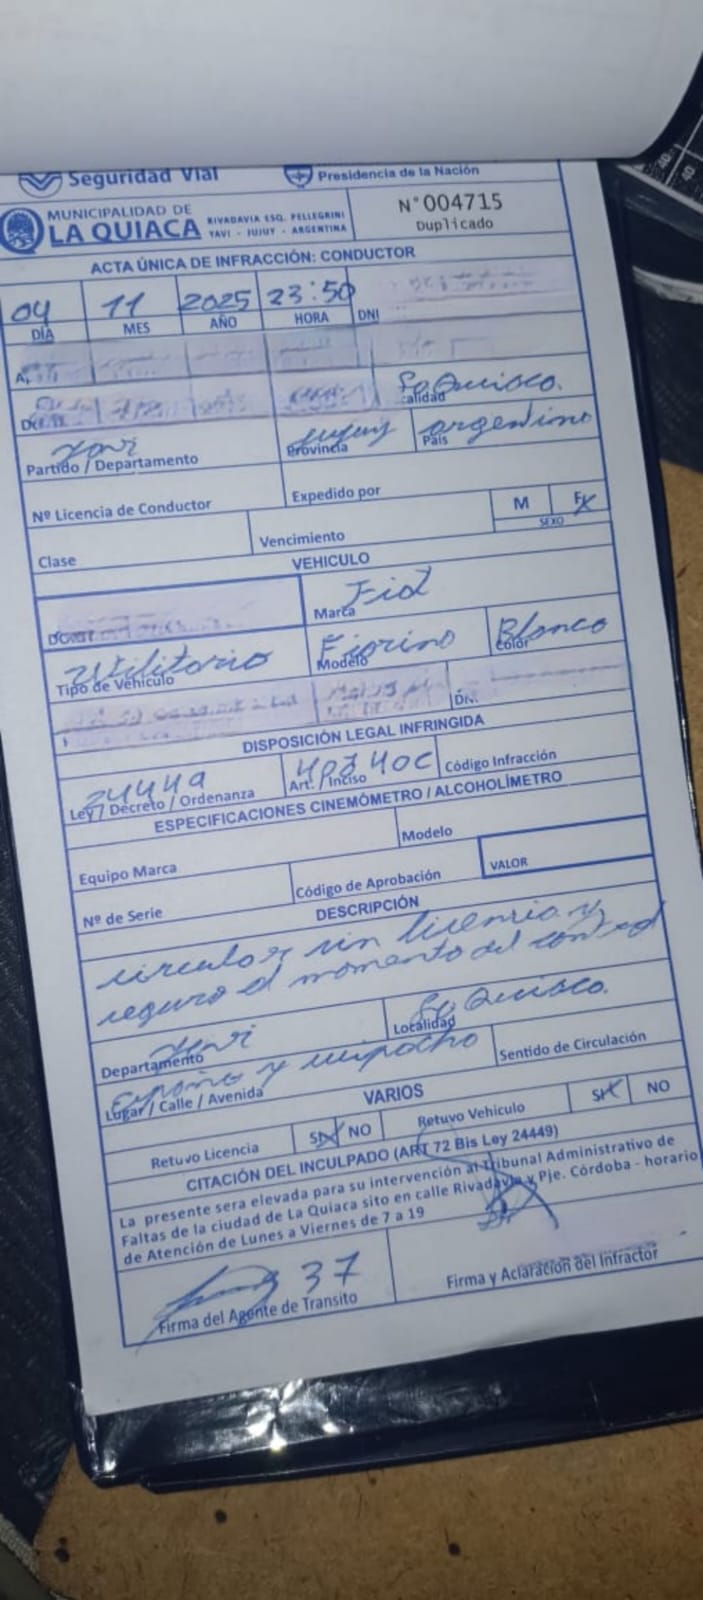 Seguridad Vial Presidencia de la Nación
MUNICIPALIDAD DE LA QUIACA RIVADAVIA ESQ. PELLEGRINI YAVI - JUJUY - ARGENTINA
N° 004715
Duplicado
ACTA ÚNICA DE INFRACCIÓN: CONDUCTOR
04 11 2025 23:50
DÍA MES AÑO HORA DNI
La Quiaca.
Yavi Jujuy argentino
Partido / Departamento Provincia País
Nº Licencia de Conductor Expedido por
M F X
SEXO
Clase Vencimiento
VEHICULO
Fiat
Marca
Utilitario Fiorino Blanco
Tipo de Vehículo Modelo Color
DISPOSICIÓN LEGAL INFRINGIDA
24449
Ley / Decreto / Ordenanza Art. / Inciso Código Infracción
ESPECIFICACIONES CINEMÓMETRO / ALCOHOLÍMETRO
Equipo Marca Modelo
Nº de Serie Código de Aprobación VALOR
DESCRIPCIÓN
circular sin licencia y
seguro al momento del control
Yavi La Quiaca.
Departamento Localidad
España y
Lugar / Calle / Avenida Sentido de Circulación
VARIOS
Retuvo Licencia SI X NO Retuvo Vehiculo SI X NO
CITACIÓN DEL INCULPADO (ART 72 Bis Ley 24449)
La presente sera elevada para su intervención al Tribunal Administrativo de
Faltas de la ciudad de La Quiaca sito en calle Rivadavia y Pje. Córdoba - horario
de Atención de Lunes a Viernes de 7 a 19
37
Firma del Agente de Transito Firma y Aclaración del Infractor